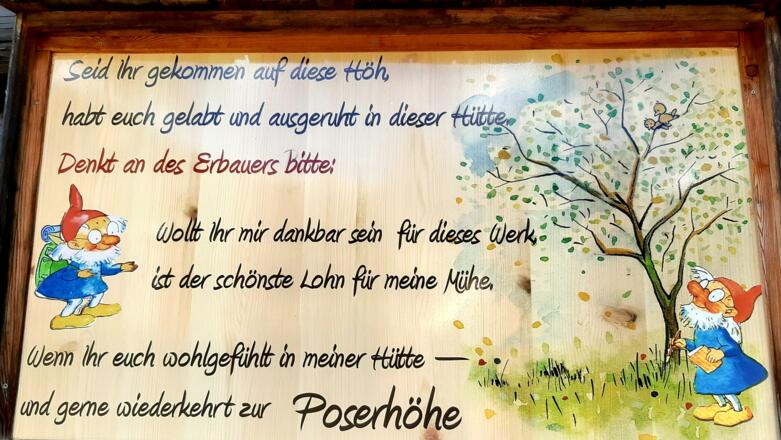 Seid ihr gekommen auf diese Höh,
habt euch gelabt und ausgeruht in dieser Hütte,
Denkt an des Erbauers bitte:
Wollt ihr mir dankbar sein für dieses Werk,
ist der schönste Lohn für meine Mühe.
Wenn ihr euch wohlgefühlt in meiner Hütte —
und gerne wiederkehrt zur Poserhöhe